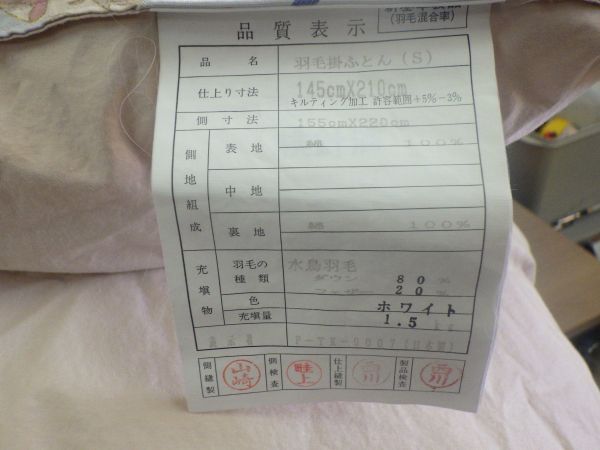 (羽毛混合率)
品質表示
品名 羽毛掛ふとん(S)
仕上り寸法 145cmX210cm
キルティング加工 許容範囲+5%-3%
側寸法 155cmX220cm
側地組成 表地 綿 100%
中地
裏地 綿 100%
充填物 羽毛の種類 水鳥羽毛
ダウン 80%
フェザー 20%
色 ホワイト
充填量 1.5kg
側縫製 山崎 側検査 畦上 仕上縫製 西川 製品検査 西川